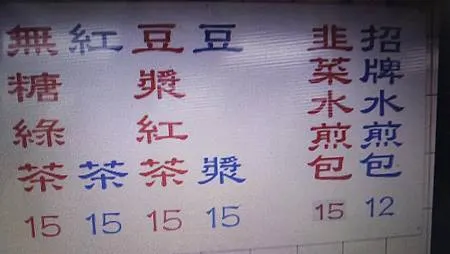 招牌水煎包 12
韭菜水煎包 15
豆漿 15
豆漿紅茶 15
紅茶 15
無糖綠茶 15